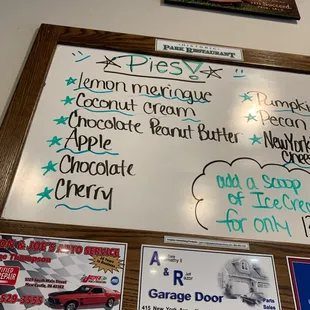 HISTORIC
PARK RESTAURANT
Pies
Lemon meringue
Coconut cream
Chocolate Peanut Butter
Apple
Chocolate
Cherry
Pumpki
Pecan
NewYork
chee
add a scoop
of IceCrea
for only
& JOE'S AUTO SERVICE
Thompson
CERTIFIED
REPAIR
529-3555
A & R
Garage Door
415 New York Ave